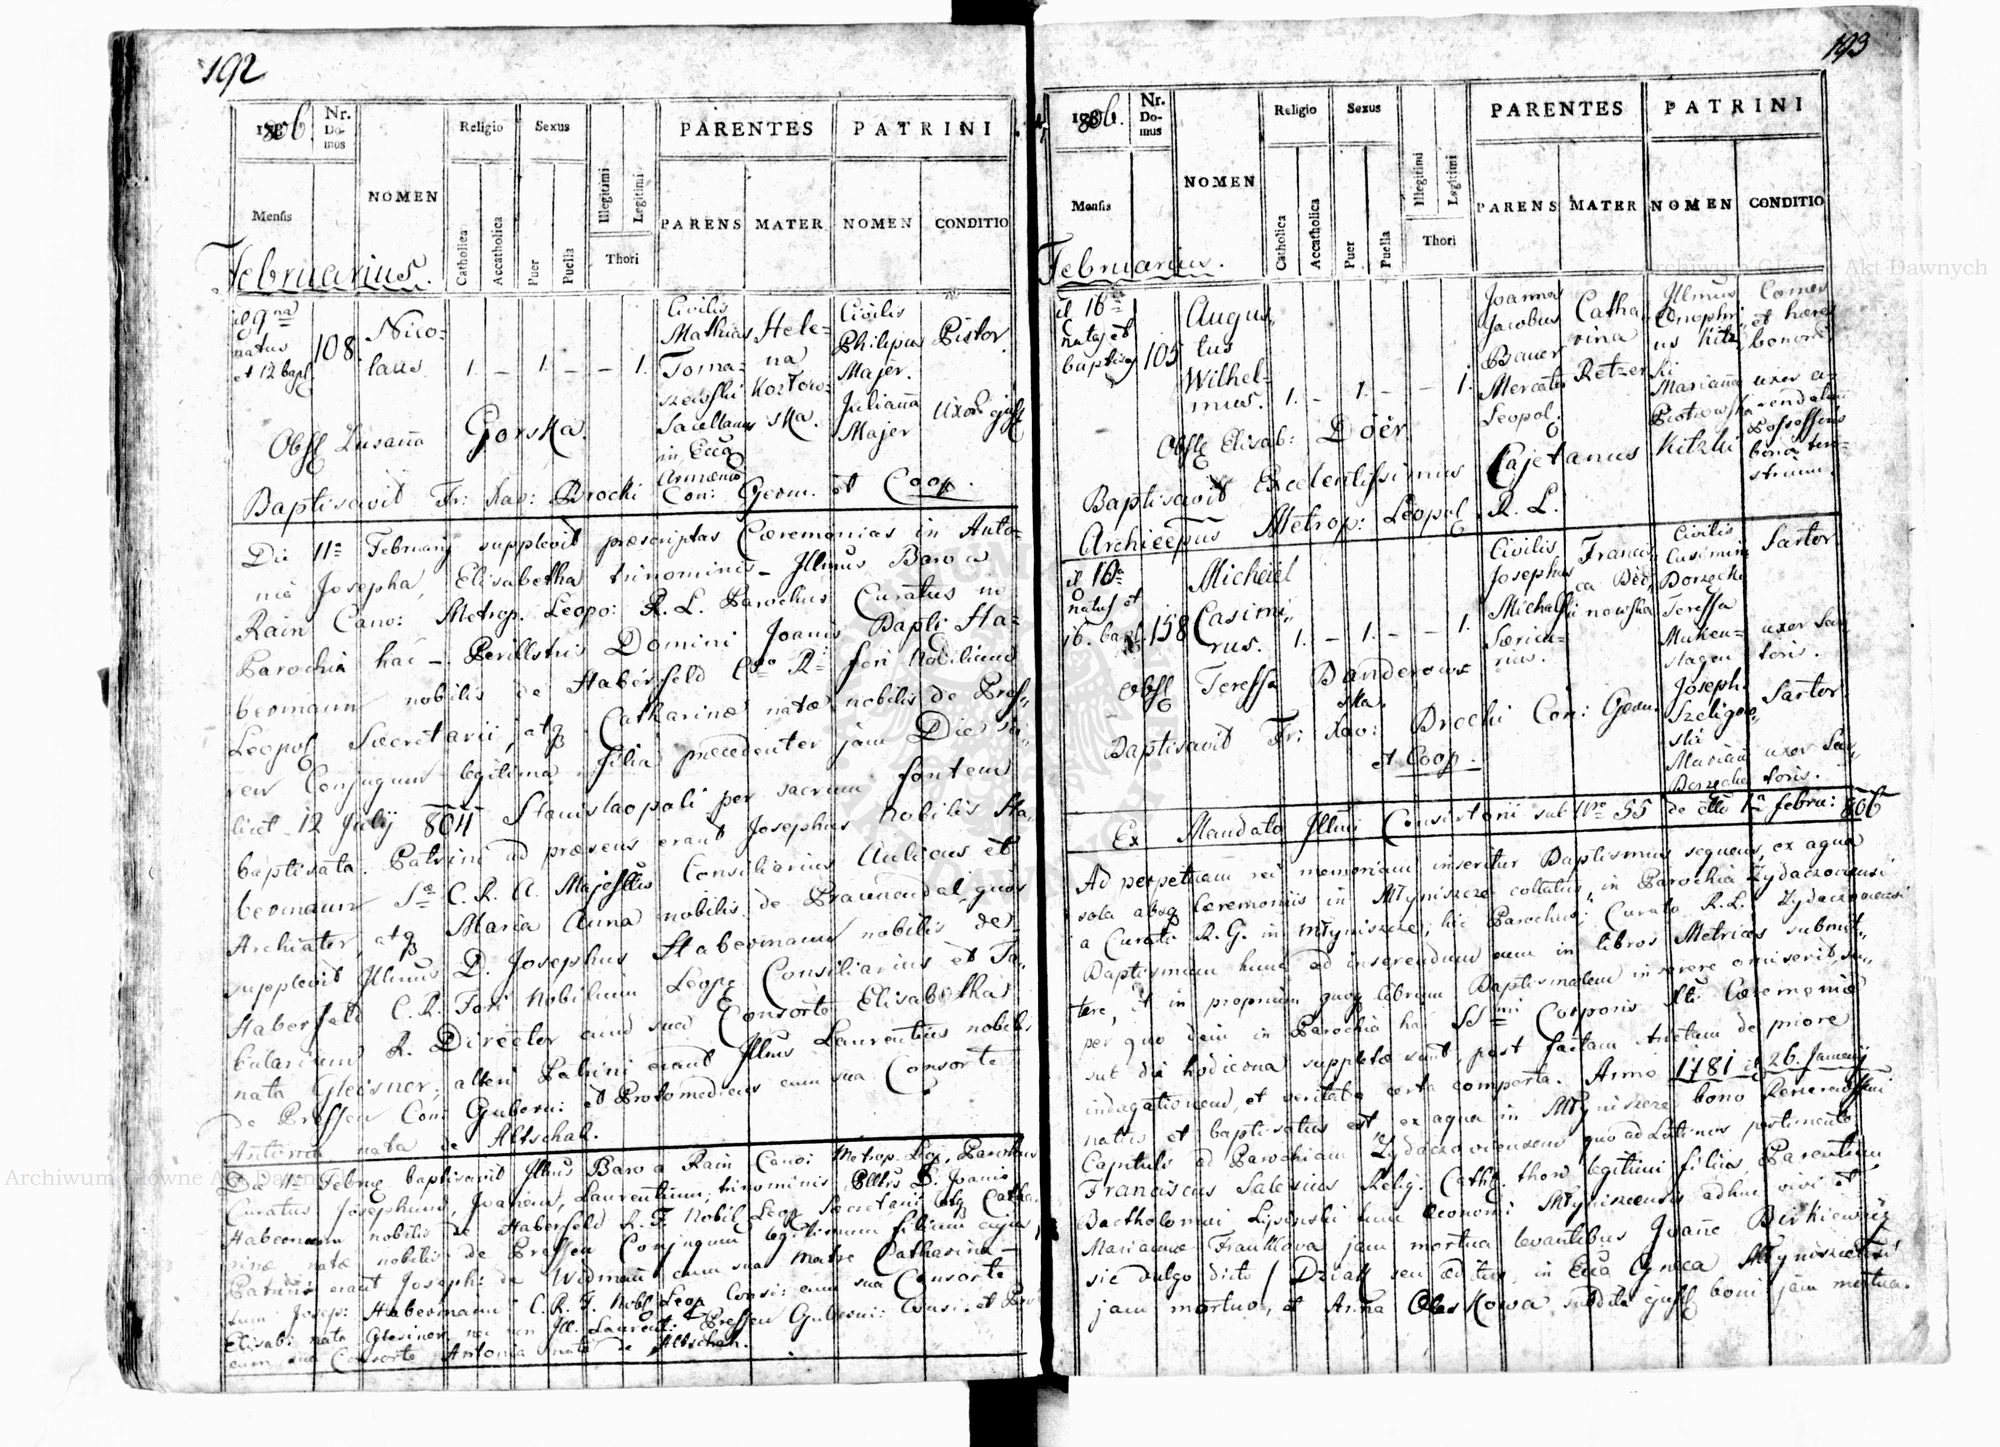 192
1806.
Nr. Do- mus
NOMEN
Religio
Sexus
PARENTES
PATRINI
Mensis
Catholica
Accatholica
Puer
Puella
Illegitimi
Legitimi
Thori
PARENS
MATER
NOMEN
CONDITIO
Februarius.
d 9na
natus
et 12 bapt
108
Nico-
laus
1. – 1. – – 1.
Civilis
Mathias
Toma-
szewski
Sacellanus
in Eccla
Armena
Hele-
na
Kozłow-
ska.
Civilis
Philipus
Majer.
Julianna
Majer
Pistor
Uxor ejus
Obst Zusanna Gorska.
Baptisavit Fr: Xav: Brocki Con: Germ. et Coop.
Die 11a February supplevit praescriptas Caeremonias in Anto-
nia Josepha, Elisabetha trinominis – Illmus Baro a
Rain Cano: Metrop. Leopo: R. L. Parochus Curatus in
Parochia hac – Perillstris Domini Joanis Bapti Ha-
bermann nobilis de Haberfeld fori Nobilium
Leopol Secretarii, atq Catharinae natae nobilis de Pres-
sen Conjugum legitima filia praecedenter jam Die
licet 12 July 804 Stanislaopoli per sacrum fontem
baptisata. Patrini ad praesens erant Josephus nobilis Ha-
bermann C. R. A. Majestis Consiliarius Aulicus et
Archiater, atq Maria Anna nobilis de Braunendal, quos
supplevit Illmus D. Josephus Habermann nobilis de
Haberfeld C. R. Fori Nobilium Leopo Consiliarius et Ta-
bularium R. Director cum sua Consorte Elisabetha
nata Gleisner; alteri Patrini erant Illmus Laurentius nobilis
de Pressen Con: Guberni: et Protomedicus cum sua Consorte
Antonia nata de Altschah.
Die 11a Febru baptisavit Illmus Baro a Rain Cano: Metrop. Leo. Parochus
Curatus Josephum, Joanem, Laurentium; trinominis Plltris D. Joanis
Habermann nobilis de Haberfeld R. F. Nobil Leop Secretarii atq Catha-
rinae natae nobilis de Pressen Conjugum legitimum filium cujus
Patrini erant Joseph: de Widmann cum sua Matre Catharina –
tum Josep: Habermann C. R. F. Nobl Leop Consi: cum sua Consorte
Elisab: nata Gleisner, nec non Ill. Laurent: Pressen Guberni: Consi: et Prot
cum sua Consorte Antonia nata de Altschah.
193
1806.
Nr. Do- mus
NOMEN
Religio
Sexus
PARENTES
PATRINI
Mensis
Catholica
Accatholica
Puer
Puella
Illegitimi
Legitimi
Thori
PARENS
MATER
NOMEN
CONDITIO
Februarius.
d 16a
natus et
baptisus
105
Augus-
tus
Wilhel-
mus.
1. – 1. – – 1.
Joannes
Jacobus
Bauer
Mercator
Leopol.
Catha-
rina
Retzer
Illmus
Onophri-
us Kitz-
ki
Marianna
Piotrowska
Comes
et haeres
bonorum
uxor a-
rendatarii
Possessoris
bonor terre-
strium.
Obst Elisab: Döer
Baptisavit Excelentissimus Cajetanus Kitzki
Archieepus Metrop: Leopol R. L.
d 16a
natus et
16. bapt.
158
Michael
Casimi-
rus.
1. – 1. – – 1.
Civilis
Josephus
Michalski
Francis-
ca
Civilis
Casimir
Borzecki
Teressa
Muken-
stagen
Joseph.
Szeligow-
ski
Mariann
Borzecka
Sartor
uxor Sar-
toris.
Sartor
uxor Sar-
toris.
Obst Teressa Banderows-
ka.
Baptisavit Fr: Xav: Brocki Con: Germ.
et Coop.
Ex Mandato Illmi Consistorii sub Nro 55 de dtto 1a febru: 806
Ad perpetuam rei memoriam inseritur Baptismus sequens, ex aqua
sola absq Ceremoniis in Młyniszcze collatus, in Parochia Zydaczoviensi
a Curato R. G. in Młyniszcze; hic Parochus Curato R. L. Zydaczoviensi
Baptismum hunc ad inserendum eum in libros Metrices submit-
tere, et in proprium quoq librum Baptismalem inserere omiserit,
per quo dein in Parochia hac SSmi Corporis Xti Caeremoniae
sub die hodierna suppletae sunt, post factam de priore
indagationem, et veritate certa comperta. Anno 1781 d 26. January
natus et baptisatus est ex aqua in Młyniszcze bono Reverendissimi
Capituli ad Parochiam Zydaczoviensem quo ad Latinos pertinente
Franciscus Salesius Relig. Cathq. thori legitimi filius, Parentum
Bartholomei Lysinski tunc Oeconomi Młyniscensis adhuc vivi et
Mariannae Frankova jam mortua levantibus Joane Birkiewicz
sic vulgo dicto / Dziak seu aeditus, in Eccla Graeca Młyniscensi
jam mortuo, et Anna Oleskowa subdita ejusd boni jam mortua.
Archiwum Główne Akt Dawnych
Archiwum Główne Akt Dawnych